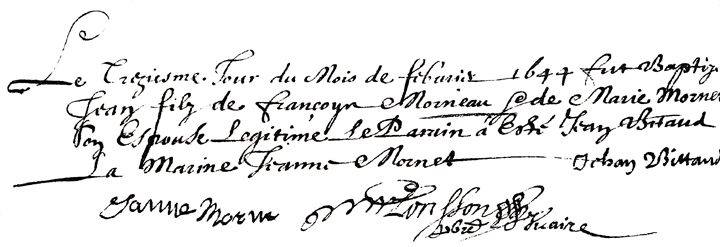 Le
Le Treziesme Jour du Mois de febvrier 1644 fut Baptiz
Jean filz de françoys Morneau & de Marie Mornet
Son Espouse Legitime Le Parain à Esté Jean Bittaud
La Marine Jeanne Mornet Jehan Bittaud
Janne Morne
vicaire